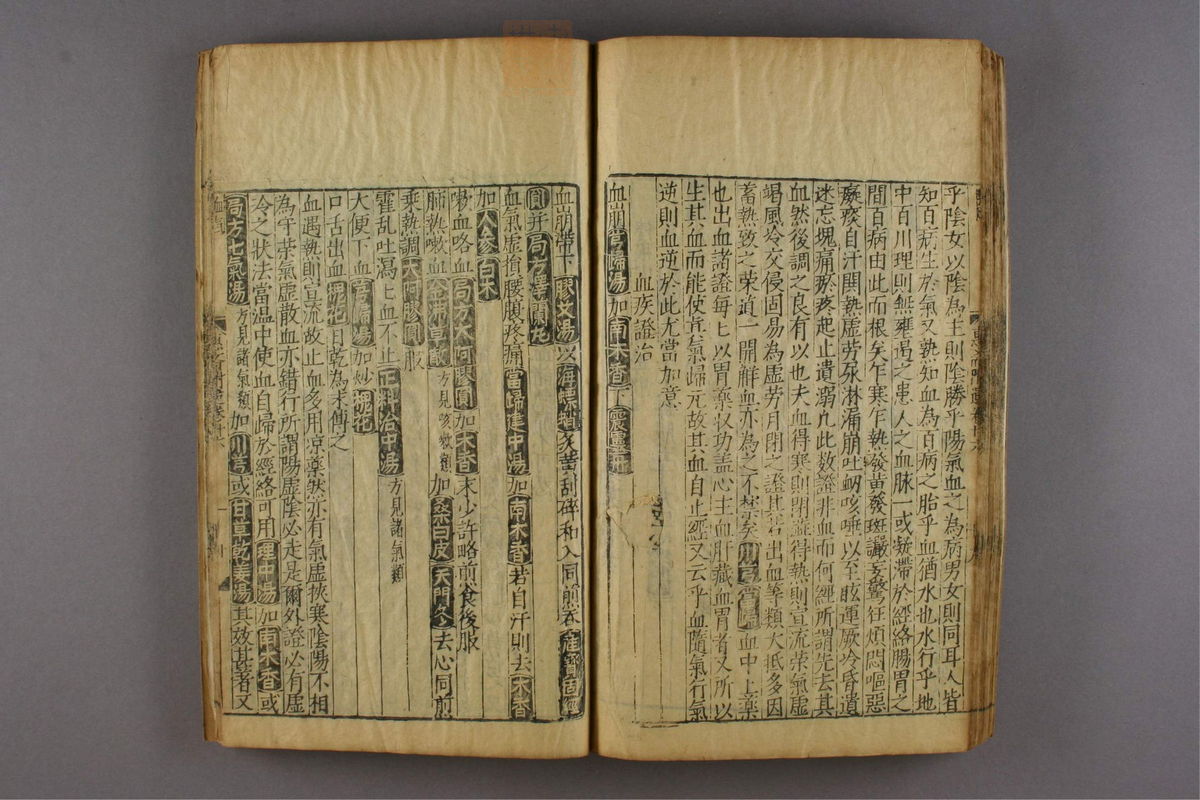 乎陰女以陰為主則陰勝乎陽氣血之為病男女則同耳人皆
知百病生於氣又孰知血為百病之胎乎血猶水也水行乎地
中百川理則無壅遏之患人之血脉一或凝滯於經絡腸胃之
間百病由此而根矣乍寒乍熱發黄發斑譫妄驚狂煩悶嘔惡
癥瘕自汗関熱虚劳尿淋漏崩吐衂咳唾以至眩運厥冷昏遺
迷忘塊痛瘀疼起止遺溺凢此数證非血而何經所謂先去其
血然後調之良有以也夫血得寒則閉澁得熱則宣流荣氣虚
竭風冷交侵固易為虚劳月閉之證其若出血等類大抵多因
蓄熱致之荣道一開鮮血亦為之不禁矣川芎當歸血中主藥
也出血諸證每匕以胃藥収功盖心主血肝藏血胃者又所以
生其血而能使其氣歸元故其血自止經又云乎血隨氣行氣
逆則血逆於此尤當加意
血疾證治
血崩當歸湯加南木香下震靈丹
血崩帶下膠艾湯以海螵蛸炙黄刮碎和入同煎吞産寳固經
圓并局方琴圓花
血氣虚損腰腹疼痛當歸建中湯加南木香若自汗則去木香
加人參白术
嗽血咯血局方大阿膠圓加木香末少許略煎食後服
肺熱嗽血金沸草散方見咳嗽類加桑白皮天門冬去心同煎
乗熱調大阿膠圓服
霍乱吐瀉上血不止正料治中湯方見諸氣類
大便下血當歸湯加炒槐花
口舌出血槐花日乾為末傅之
血遇熱則宣流故止血多用凉藥然亦有氣虚挾寒陰陽不相
為守荣氣虚散血亦錯行所謂陽虚陰必走是爾外證必有虚
冷之狀法當温中使血自歸於經絡可用理中湯加南木香或
局方七氣湯方見諸氣類加川芎或甘草乾姜湯其效甚著又